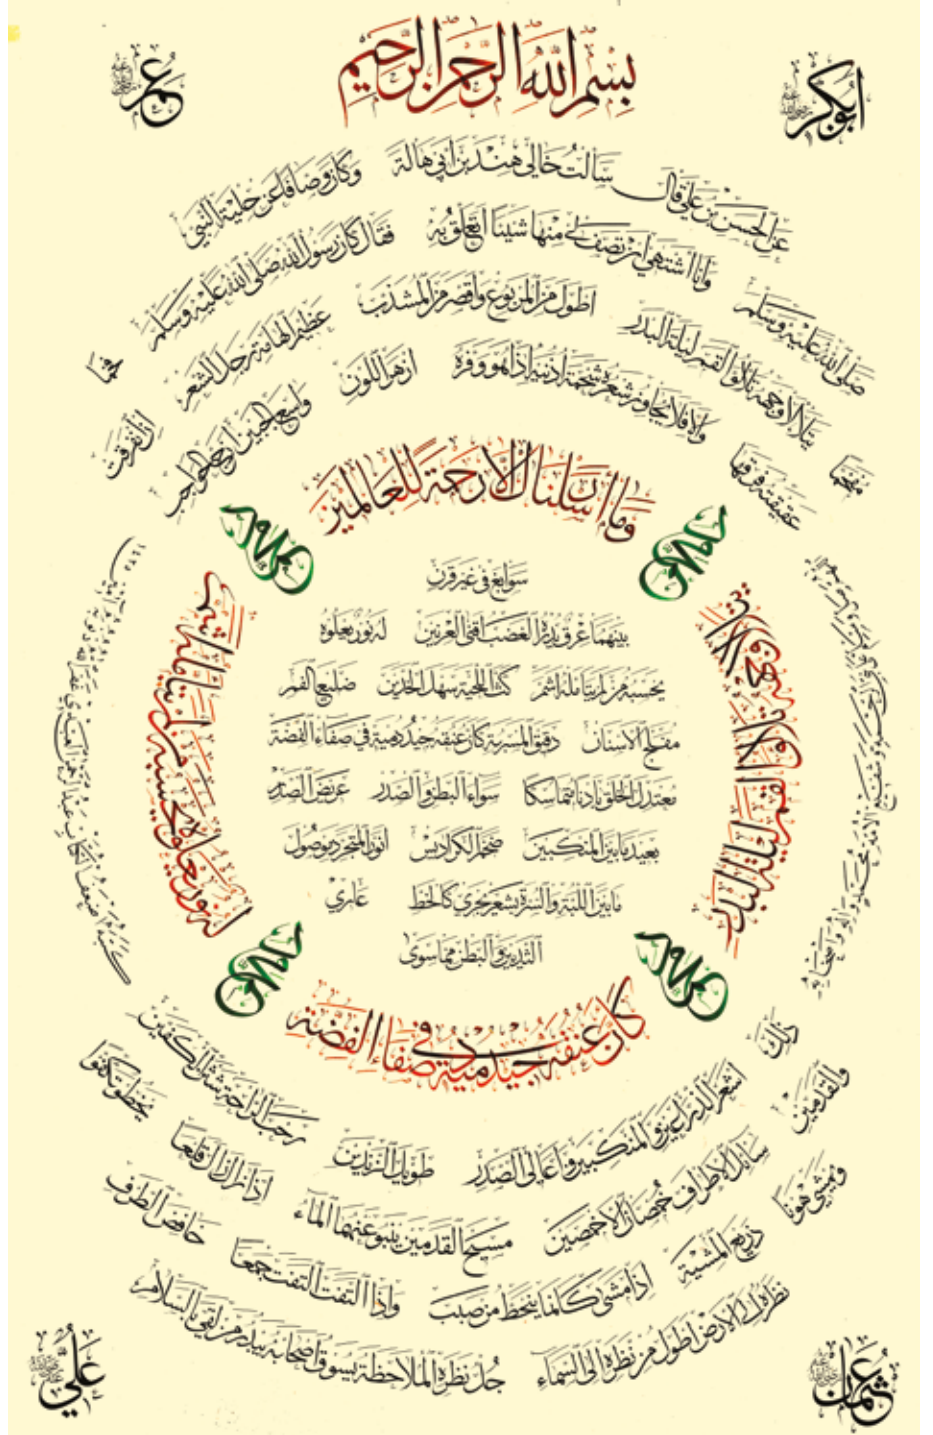 بسم الله الرحمن الرحيم
أبوبكر رضي الله عنه
عمر رضي الله عنه
عن الحسن بن علي قال سألت خالي هند بن أبي هالة وكان وصافا عن حلية النبي
صلى الله عليه وسلم وأنا أشتهي أن يصف لي منها شيئا أتعلق به فقال كان رسول الله صلى الله عليه وسلم فخما
مفخما يتلألأ وجهه تلألؤ القمر ليلة البدر أطول من المربوع وأقصر من المشذب عظيم الهامة رجل الشعر إن انفرقت
عقيقته فرقها وإلا فلا يجاوز شعره شحمة أذنيه إذا هو وفره أزهر اللون واسع الجبين أزج الحواجب
وما أرسلناك إلا رحمة للعالمين
سوابغ في غير قرن
بينهما عرق يدره الغضب أقنى العرنين له نور يعلوه
يحسبه من لم يتأمله أشم كث اللحية سهل الخدين ضليع الفم
مفلج الأسنان دقيق المسربة كأن عنقه جيد دمية في صفاء الفضة
معتدل الخلق بادنا متماسكا سواء البطن والصدر عريض الصدر
بعيد ما بين المنكبين ضخم الكراديس أنور المتجرد موصول
ما بين اللبة والسرة بشعر يجري كالخط عاري
الثديين والبطن مما سوى
وجهه تلألؤ القمر ليلة البدر
له نور يعلوه يحسبه من لم يتأمله أشم
كأن عنقه جيد دمية في صفاء الفضة
ذلك أشعر الذراعين والمنكبين وأعالي الصدر طويل الزندين رحب الراحة شثن الكفين
والقدمين سائل الأطراف خمصان الأخمصين مسيح القدمين ينبو عنهما الماء إذا زال زال قلعا يخطو تكفؤا
ويمشي هونا ذريع المشية إذا مشى كأنما ينحط من صبب وإذا التفت التفت جمعا خافض الطرف
نظره إلى الأرض أطول من نظره إلى السماء جل نظره الملاحظة يسوق أصحابه يبدر من لقي بالسلام
عثمان رضي الله عنه
علي رضي الله عنه